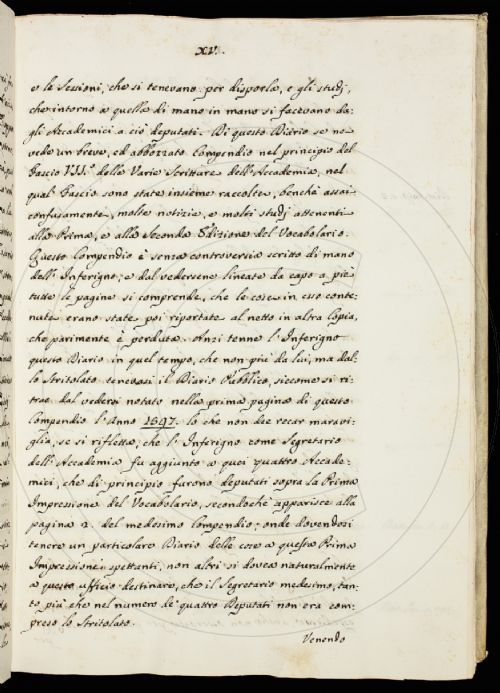 XV.
e le Sessioni, che si tenevano per disporla, e gli studj,
che intorno a quella di mano in mano si facevano da-
gli Accademici a ciò deputati. Di questo Diario se ne
vede un breve, ed abbozzato Compendio nel principio del
Fascio VII.° delle Varie Scritture dell'Accademia, nel
qual Fascio sono state insieme raccolte, benchè assai
confusamente, molte notizie, e molti studj attenenti
alla Prima, e alla Seconda Edizione del Vocabolario.
Questo Compendio è senza controversia scritto di mano
dell'Inferigno; e dal vedersene lineate da capo a piè
tutte le pagine si comprende, che le cose in esso conte-
nute erano state poi riportate al netto in altra Copia,
che parimente è perduta. Anzi tenne l'Inferigno
questo Diario in quel tempo, che non più da lui, ma dal-
lo Stritolato tenevasi il Diario Pubblico, siccome si ri-
trae dal vedersi notato nella prima pagina di questo
Compendio l'Anno 1597. lo che non dee recar maravi-
glia, se si rifletta, che l'Inferigno come Segretario
dell'Accademia fu aggiunto a quei quattro Accade-
mici, che di principio furono deputati sopra la Prima
Impressione del Vocabolario, secondochè apparisce alla
pagina 2. del medesimo Compendio; onde dovendosi
tenere un particolare Diario delle cose a questa Prima
Impressione spettanti, non altri si dovea naturalmente
a questo ufficio destinare, che il Segretario medesimo, tan-
to più che nel numero de' quattro Deputati non era com-
preso lo Stritolato.
Venendo